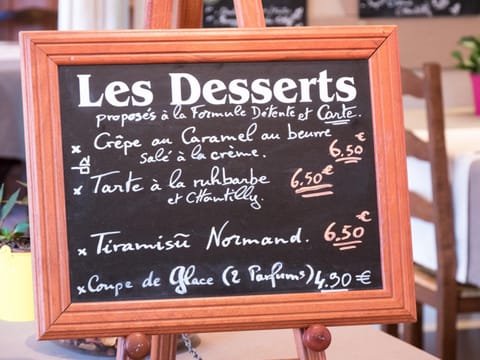 Les Desserts
proposés à la Formule Détente et Carte.
x Crêpe au Caramel au beurre
salé à la crème. 6.50 €
x Tarte à la ruhbarbe 6.50 €
et CHantilly.
x Tiramisū Normand. 6.50 €
x Coupe de Glace (2 Parfums) 4.90 €